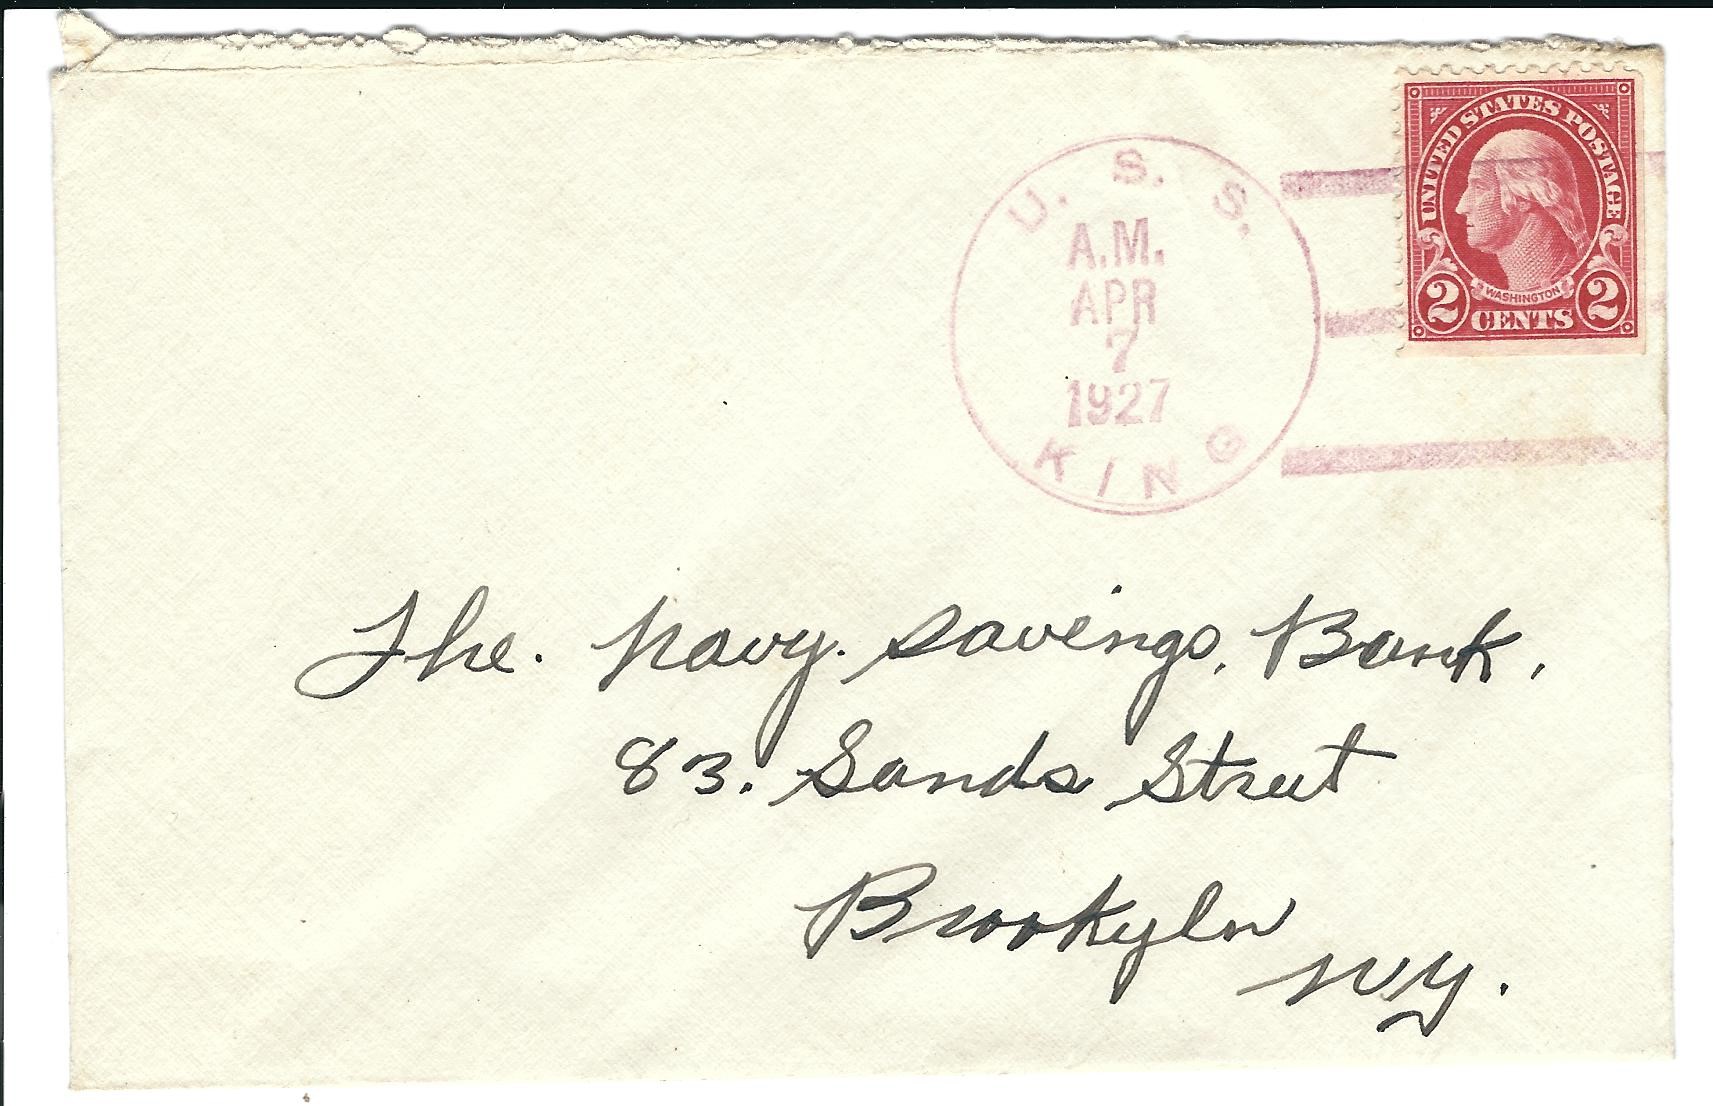 U. S. S.
A.M.
APR
7
1927
KING
UNITED STATES POSTAGE
WASHINGTON
2 CENTS 2
The. Navy. Savings. Bank.
83. Sands Street
Brookyln
NY.